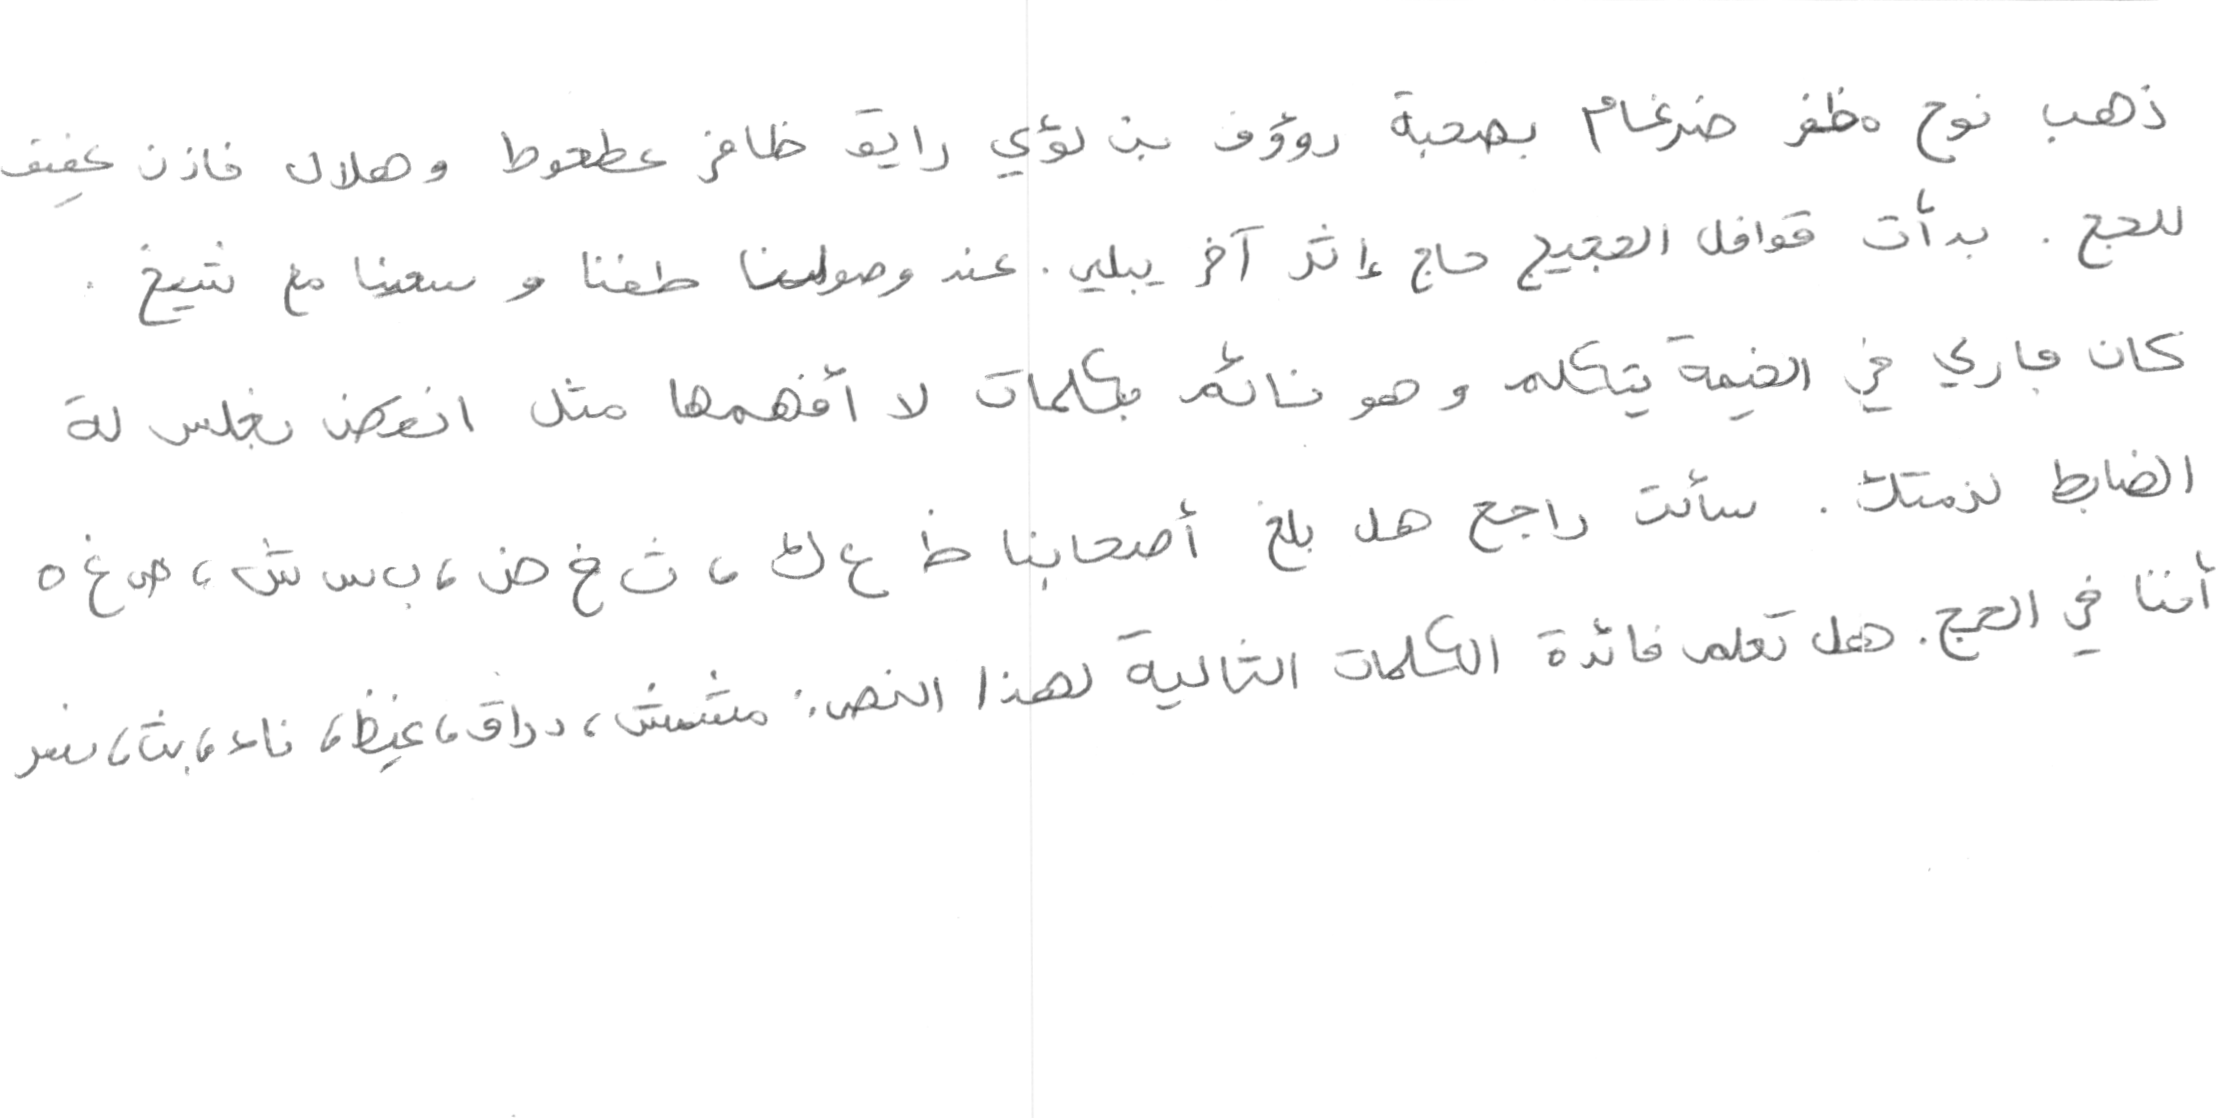 ذهب نوح مظفر ضرغام بصحبة رؤوف بن لؤي رايق ظافر عطعوط وهلال فازن عفيف
للحج . بدأت قوافل الحجيج حاج إثر آخر يبلي . عند وصولنا طفنا و سعينا مع شيخ .
كان جاري في الخيمة يتكلم وهو نائم بكلمات لا أفهمها مثل نجلس لة
الضابط لزمتك . سألت راجح هل بلغ أصحابنا ظ ع ك ، ث خ ض ، ب س ش ، ص غ ه
أننا في الحج . هل تعلم فائدة الكلمات التالية لهذا النص : مشمش ، دراق ، غيظ ، ناء ، بث ، نسر